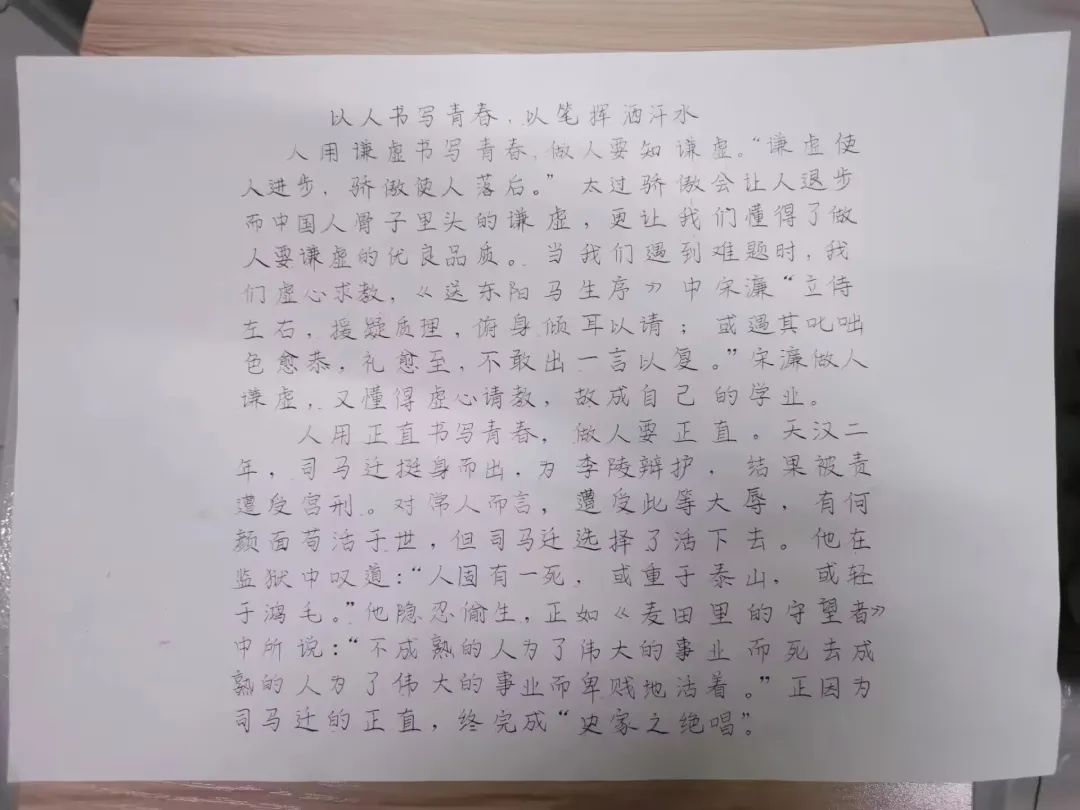 以人书写青春，以笔挥洒汗水
人用谦虚书写青春，做人要知谦虚。“谦虚使
人进步，骄傲使人落后。”太过骄傲会让人退步
而中国人骨子里头的谦虚，更让我们懂得了做
人要谦虚的优良品质。当我们遇到难题时，我
们虚心求教，《送东阳马生序》中宋濂“立侍
左右，援疑质理，俯身倾耳以请；或遇其叱咄
色愈恭，礼愈至，不敢出一言以复。”宋濂做人
谦虚，又懂得虚心请教，故成自己的学业。
人用正直书写青春，做人要正直。天汉二
年，司马迁挺身而出，为李陵辩护，结果被责
遭受宫刑。对常人而言，遭受此等大辱，有何
颜面苟活于世，但司马迁选择了活下去。他在
监狱中叹道：“人固有一死，或重于泰山，或轻
于鸿毛。”他隐忍偷生，正如《麦田里的守望者》
中所说：“不成熟的人为了伟大的事业而死去成
熟的人为了伟大的事业而卑贱地活着。”正因为
司马迁的正直，终完成“史家之绝唱”。